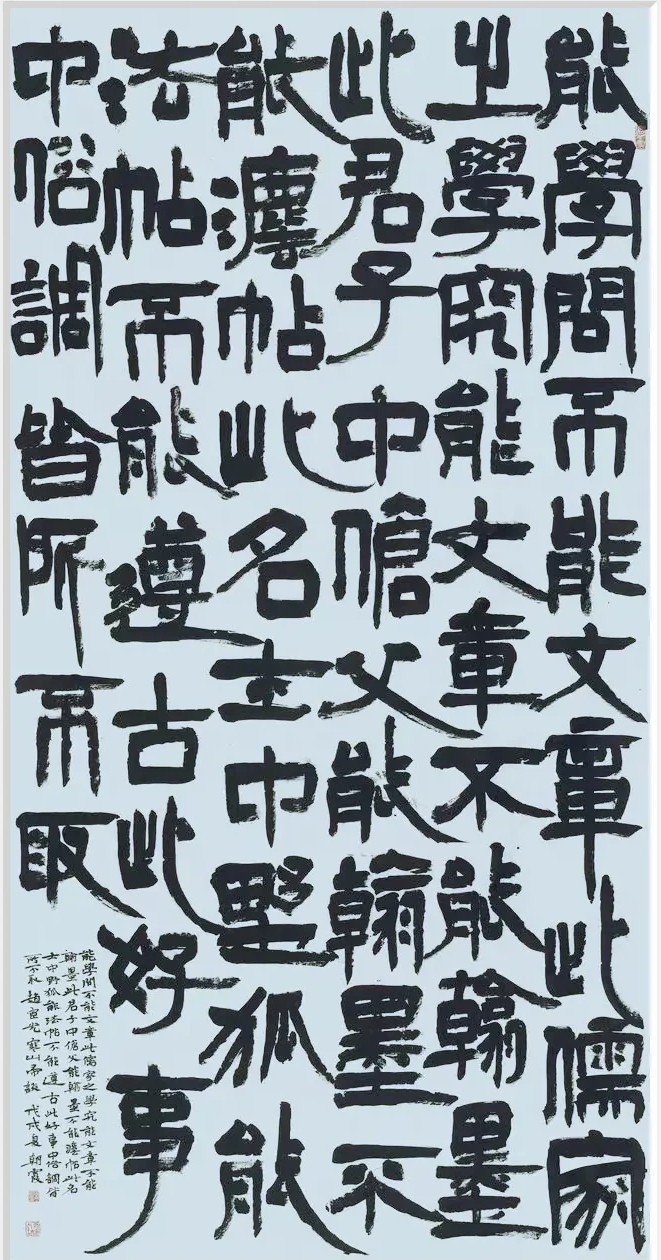 能學問不能文章此儒家
之學究能文章不能翰墨
此君子中傖父能翰墨不
能灋帖此名士中野狐能
法帖不能遵古此好事
中俗調皆所不取
能學問不能文章此儒家之學究能文章不能
翰墨此君子中傖父能翰墨不能灋帖此名
士中野狐能法帖不能遵古此好事中俗調皆
所不取 趙宧光寒山帚談 戊戌夏朝霞